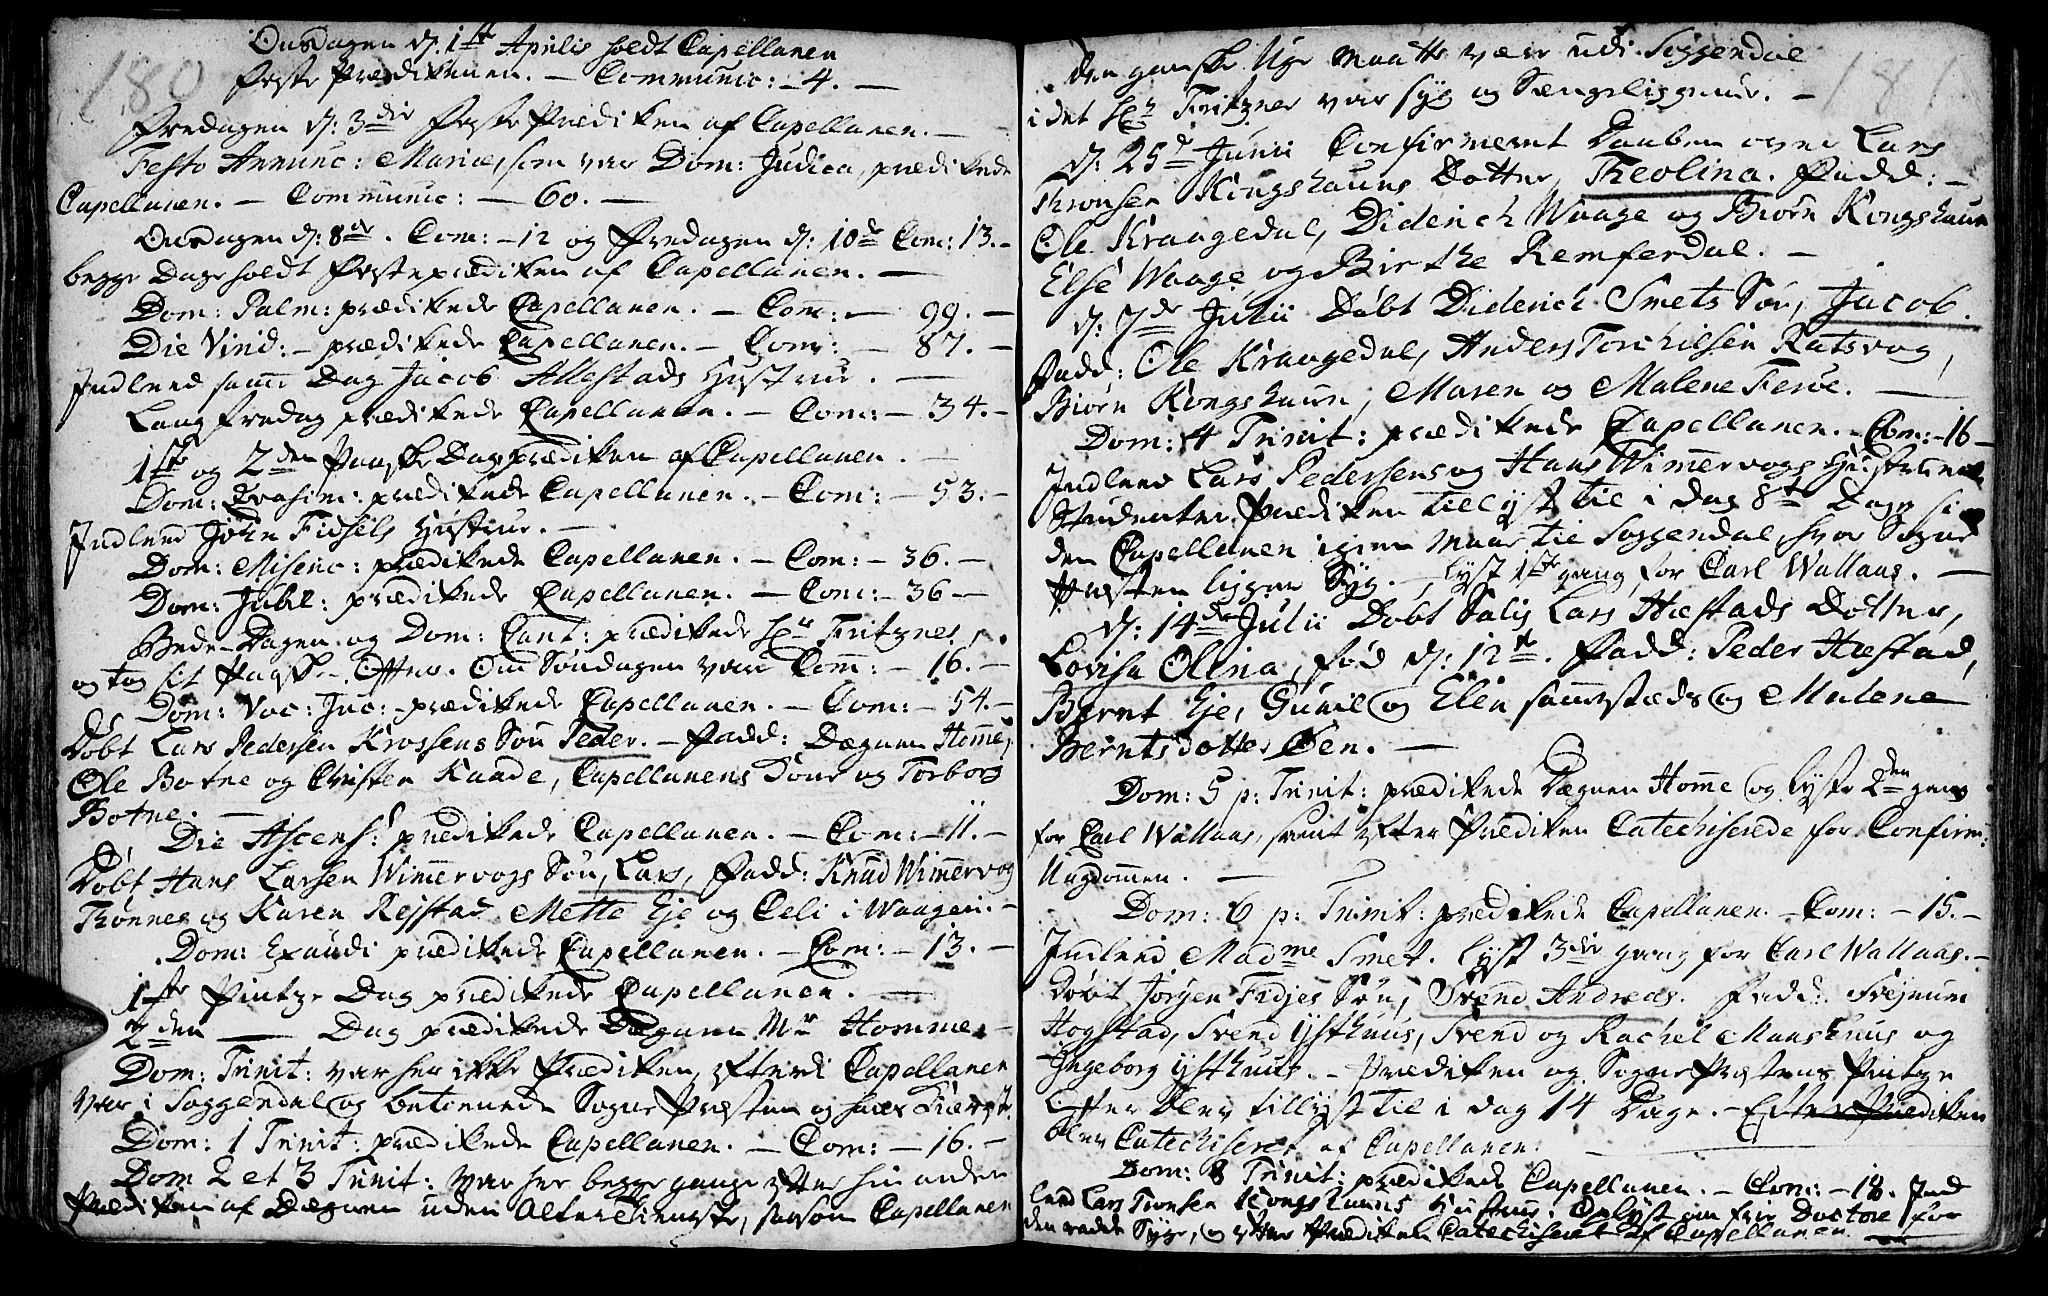 180
Onsdagen d. 1ste Aprilis holdt Capellanen
Faste Prædikenen. – Communic: – 4. –
Fredagen d: 3die Faste Prædiken af Capellanen. –
Festo Annunc: Mariæ, som var Dom: Judica, prædikede
Capellanen. – Communic: – 60. –
Onsdagen d: 8de. Com: – 12 og Fredagen d: 10de Com: 13. –
begge Dage holdt Fasteprædiken af Capellanen. –
Dom: Palm: prædikede Capellanen. – Com̄: – 99. –
Die Virid: – prædikede Capellanen. – Com: – 87. –
Indleed samme Dag Jacob Allestads Hustrue. –
Langfredag prædikede Capellanen. – Com: – 34. –
1ste og 2den Paaske Dag prædiken af Capellanen. –
Dom: Qvasim: prædikede Capellanen. – Com: – 53. –
Indleed John Fidsels Hustrue. –
Dom: Miseric: prædikede Capellanen. – Com: – 36. –
Dom: Jubil: prædikede Capellanen. – Com: – 36 –
Bede-Dagen og Dom: Cant: prædikede Hr Fritzner
og tog sit Paaske-Offer. Om Søndagen var Com̄: – 16. –
Dom: Voc: Juc: prædikede Capellanen. – Com: – 54. –
Døbt Lars Pedersen Krossens Søn Peder. – Fadd: Degnen Homme,
Ole Botne og Christen Kaade, Capellanens Kone og Torbor
Botne. –
Die Ascens: prædikede Capellanen. – Com: – 11. –
Døbt Hans Larsen Wimmervogs Søn, Lars, Fadd: Knud Wimmervog
Thønnes og Karen Rejstad Mette Eje og Celi i Waagen. –
Dom: Exaudi prædikede Capellanen. – Com: – 13. –
1ste Pintze Dag prædikede Capellanen. –
2den – Dag prædikede Degnen Mr Homme. –
Dom: Trinit: var her ikke Prædiken, efterdi Capellanen
var i Soggendal og betienede Sogne Præsten og hans
Dom: 1 Trinit: prædikede Capellanen. – Com: – 16. –
Dom 2 et 3 Trinit: var her begge gange efter hin anden
Prædiken af Degnen uden Altertieneste, saasom Capellanen
181
den ganske Uge maatte være udi Soggendal
i det Hr Fritzner var syg og Sængeliggende. –
d: 25de Junii Confirmeret Daaben over Lars
Thronsen Kongshauns Dotter, Theolina. Fadd: –
Ole Kraagedal, Diderich Waage og Biørn Kongshaun
Else Waage og Birthe Remferdal. –
d: 7de Julii Døbt Diderich Smets Søn, Jacob.
Fadd: Ole Kraagedal, Anders Torchilsen Ratsvog,
Biørn Kongshaun, Maren og Malene Ferøe. –
Dom: 4 Trinit: prædikede Capellanen. – Com: – 16 –
Indleed Lars Pedersens og Hans Wimmervogs Hustruer.
Studenter Prædiken tillyst til i dag 8te Dage,
den Capellanen igien maae til Soggendal, hvor Sogne
Præsten ligger Syg. –, lyst 1ste gang for Carl Wallaas. –
d: 14de Julii Døbt Salig Lars Hæstads Dotter,
Lovisa Olina, fød d: 12te. Fadd: Peder Hæstad,
Bernt Eje, Gunil og Elen sammestæds og Malene
Berntsdotter Øen. –
Dom: 5 p: Trinit: prædikede Degnen Homme og lyste 2den gang
for Carl Wallaas, samt efter Prædiken Catechiserede for Confirm:
Ungdommen. –
Dom: 6 p: Trinit: prædikede Capellanen. – Com: – 15. –
Indleed Madme Smet. Lyst 3die gang for Carl Wallaas. –
Døbt Jørgen Fidjes Søn, Svend Andreas. Fadd: Svejnum
Hogstad, Svend Ysthuus, Svend og Rachel Monshuus og
Ingeborg Ysthuus. – Prædiken og Sogne Præstens Pintze
Offer blev tillyst til i dag 14 Dage. – Efter Prædiken
blev Catechiseret af Capellanen. –
Dom: 8 Trinit: prædikede Capellanen. – Com: – 18. Ind
leed Lars Tronsen Kongshauns Hustrue. Oplyst om frie Doctore for
den rade Syge, og efter Prædiken Catechiseret af Capellanen –